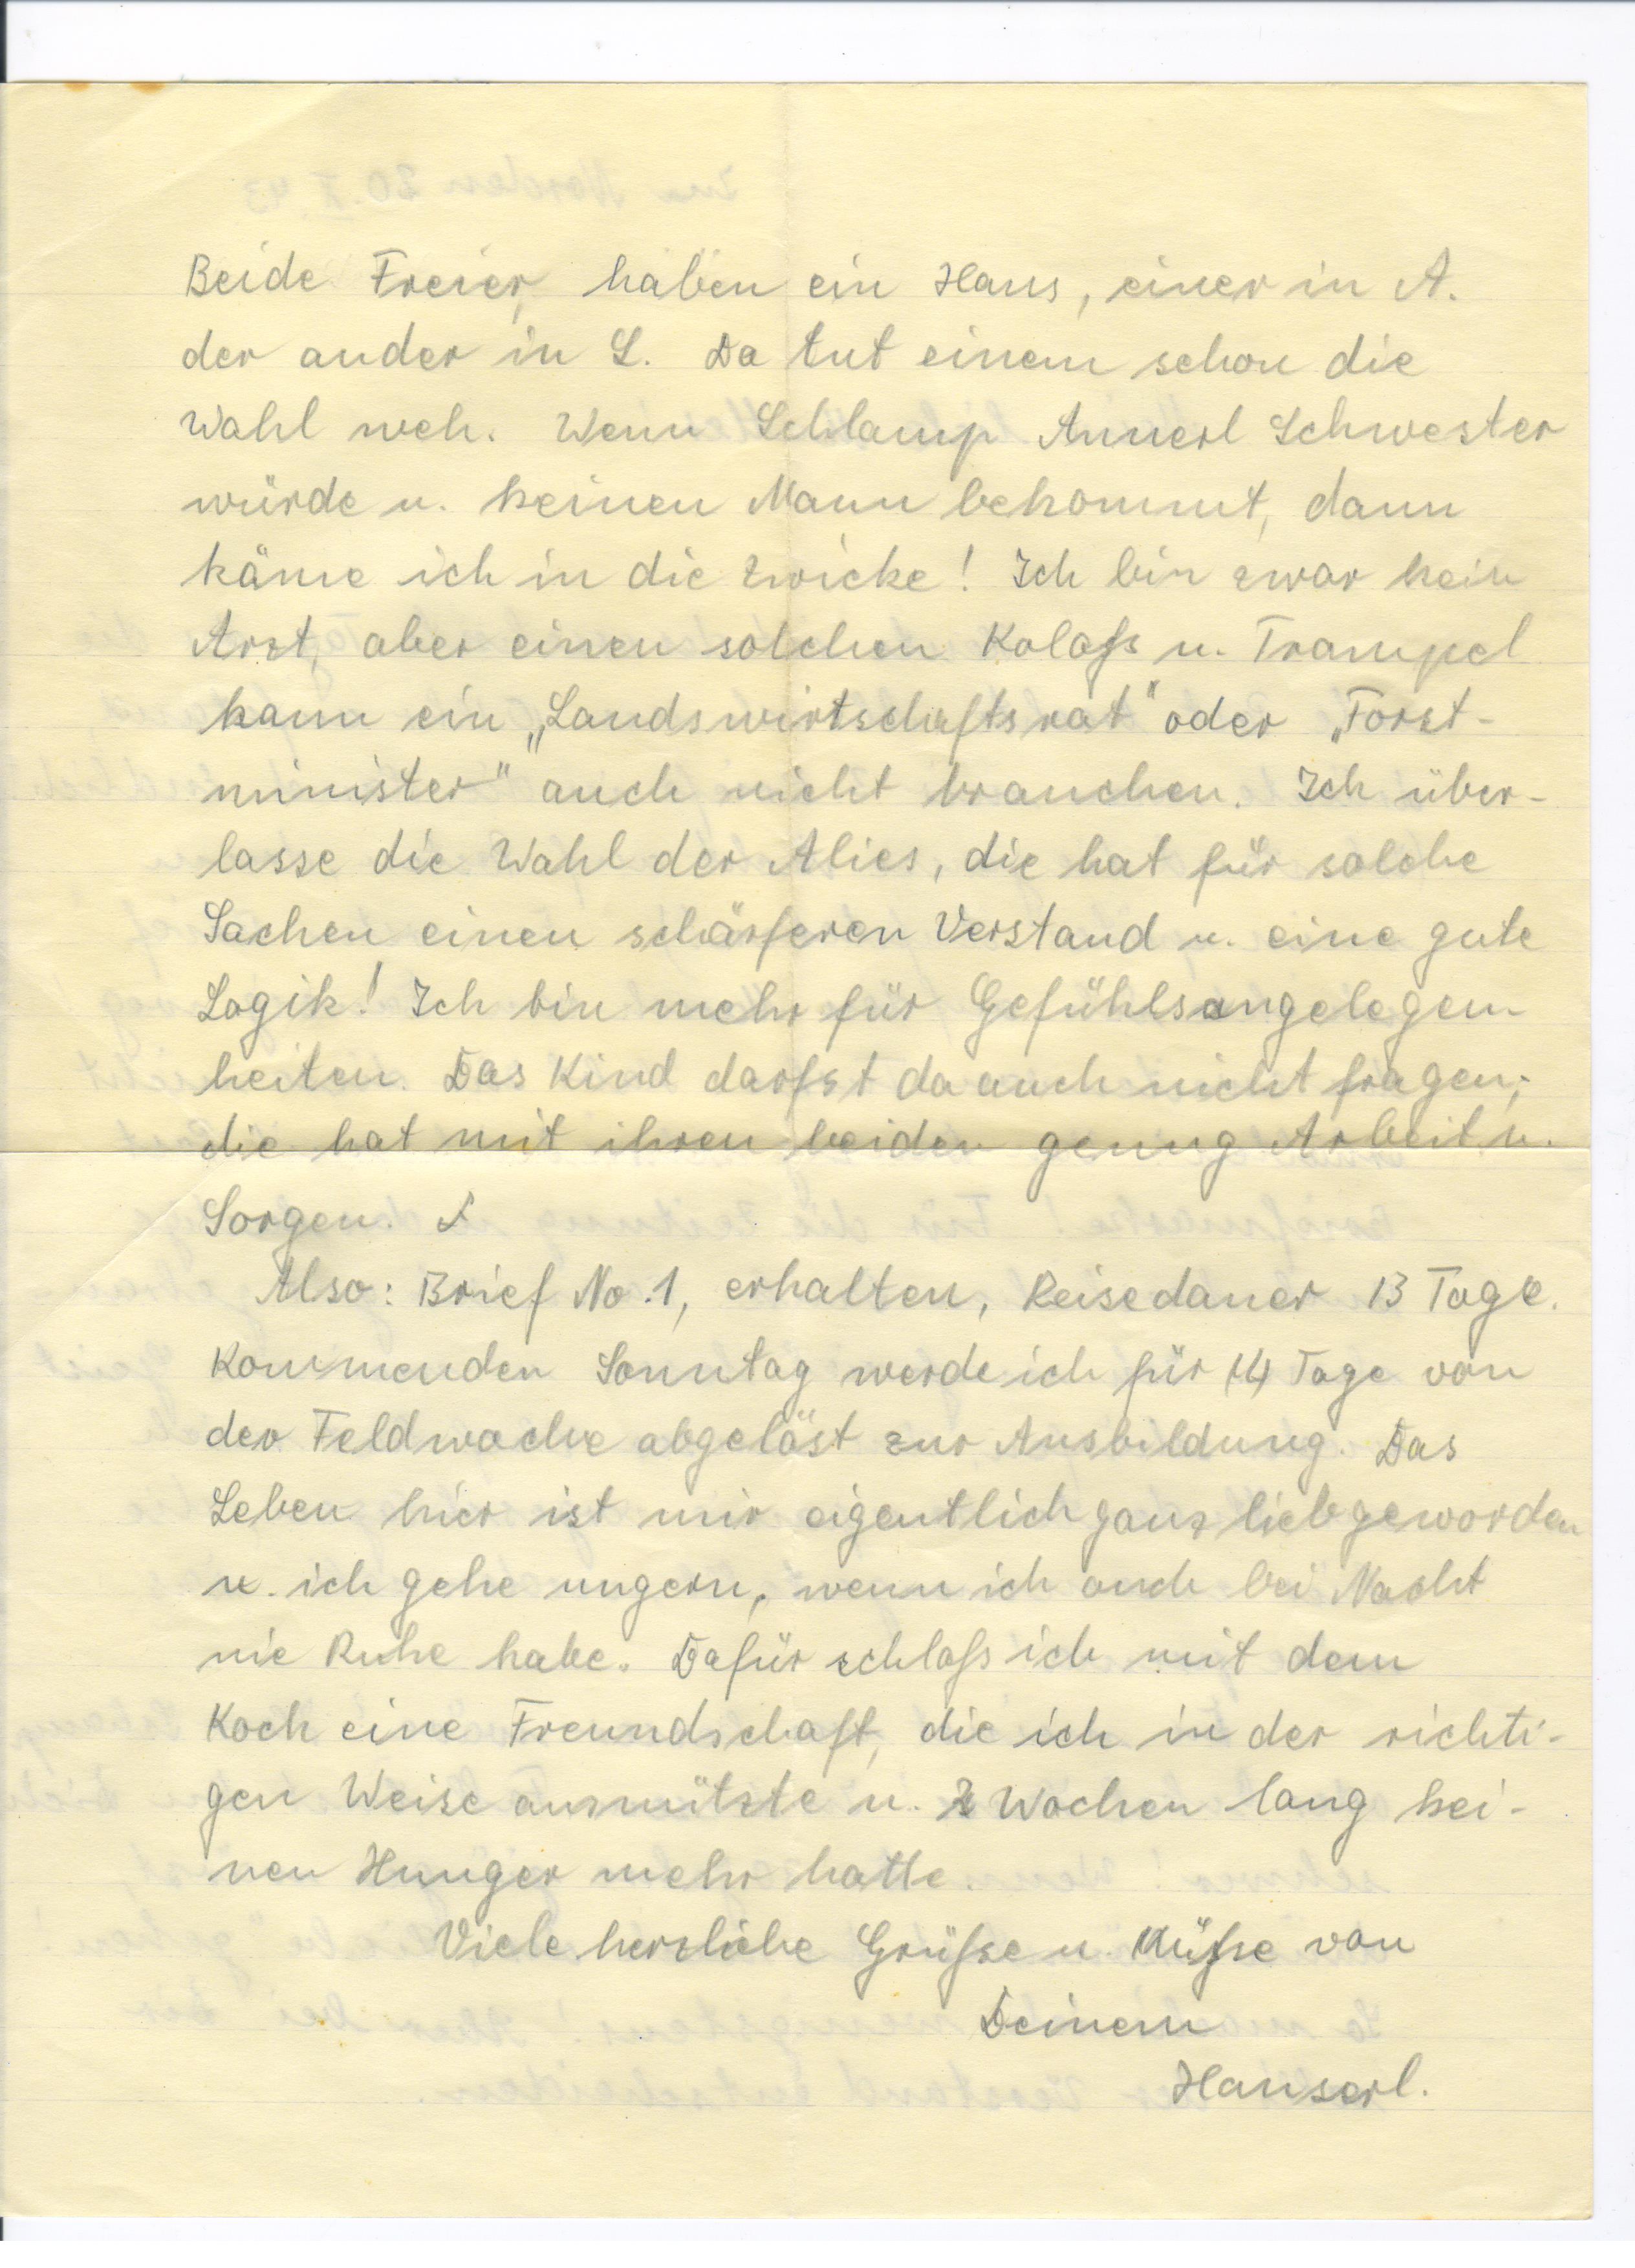 Beide Freier, haben ein Haus, einer in A.
der ander in L. Da tut einem schon die
Wahl weh. Wenn Schlamp Annerl Schwester
würde u. keinen Mann bekommt, dann
käme ich in die Zwicke! Ich bin zwar kein
Arzt, aber einen solchen Kolaß u. Trampel
kann ein „Landswirtschaftsrat" oder „Forst-
minister" auch nicht brauchen. Ich über-
lasse die Wahl der Alies, die hat für solche
Sachen einen schärferen Verstand u. eine gute
Logik! Ich bin mehr für Gefühlsangelegen
heiten. Das Kind darfst da auch nicht fragen;
die hat mit ihren beiden genug Arbeit u.
Sorgen.
Also: Brief No. 1, erhalten, Reisedauer 13 Tage.
Kommenden Sonntag werde ich für 14 Tage von
der Feldwache abgelöst zur Ausbildung. Das
Leben hier ist mir eigentlich ganz lieb geworden
u. ich gehe ungern, wenn ich auch bei Nacht
nie Ruhe habe. Dafür schloß ich mit dem
Koch eine Freundschaft, die ich in der richti-
gen Weise ausnützte u. 2 Wochen lang kei-
nen Hunger mehr hatte.
Viele herzliche Grüße u. Küße von
Deinem
Hanserl.